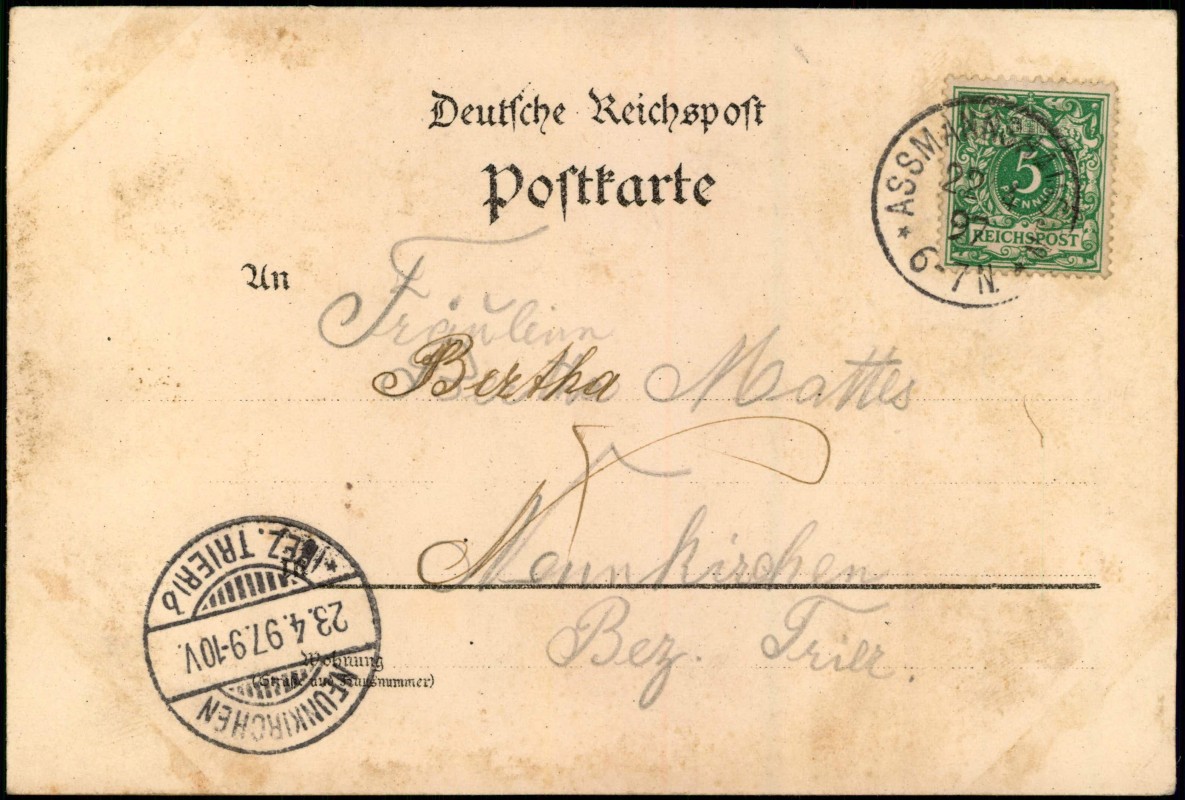 Deutsche Reichspost
Postkarte
An
5
PFENNIG
REICHSPOST
* ASSMANNSHAUSEN *
22
4
97
6-7N.
Fräulein
Bertha Mattes
Neunkirchen
Bez. Trier.
Wohnung
(Straße und Hausnummer)
NEUNKIRCHEN
23.4.97.9-10V.
* (BEZ. TRIER) b